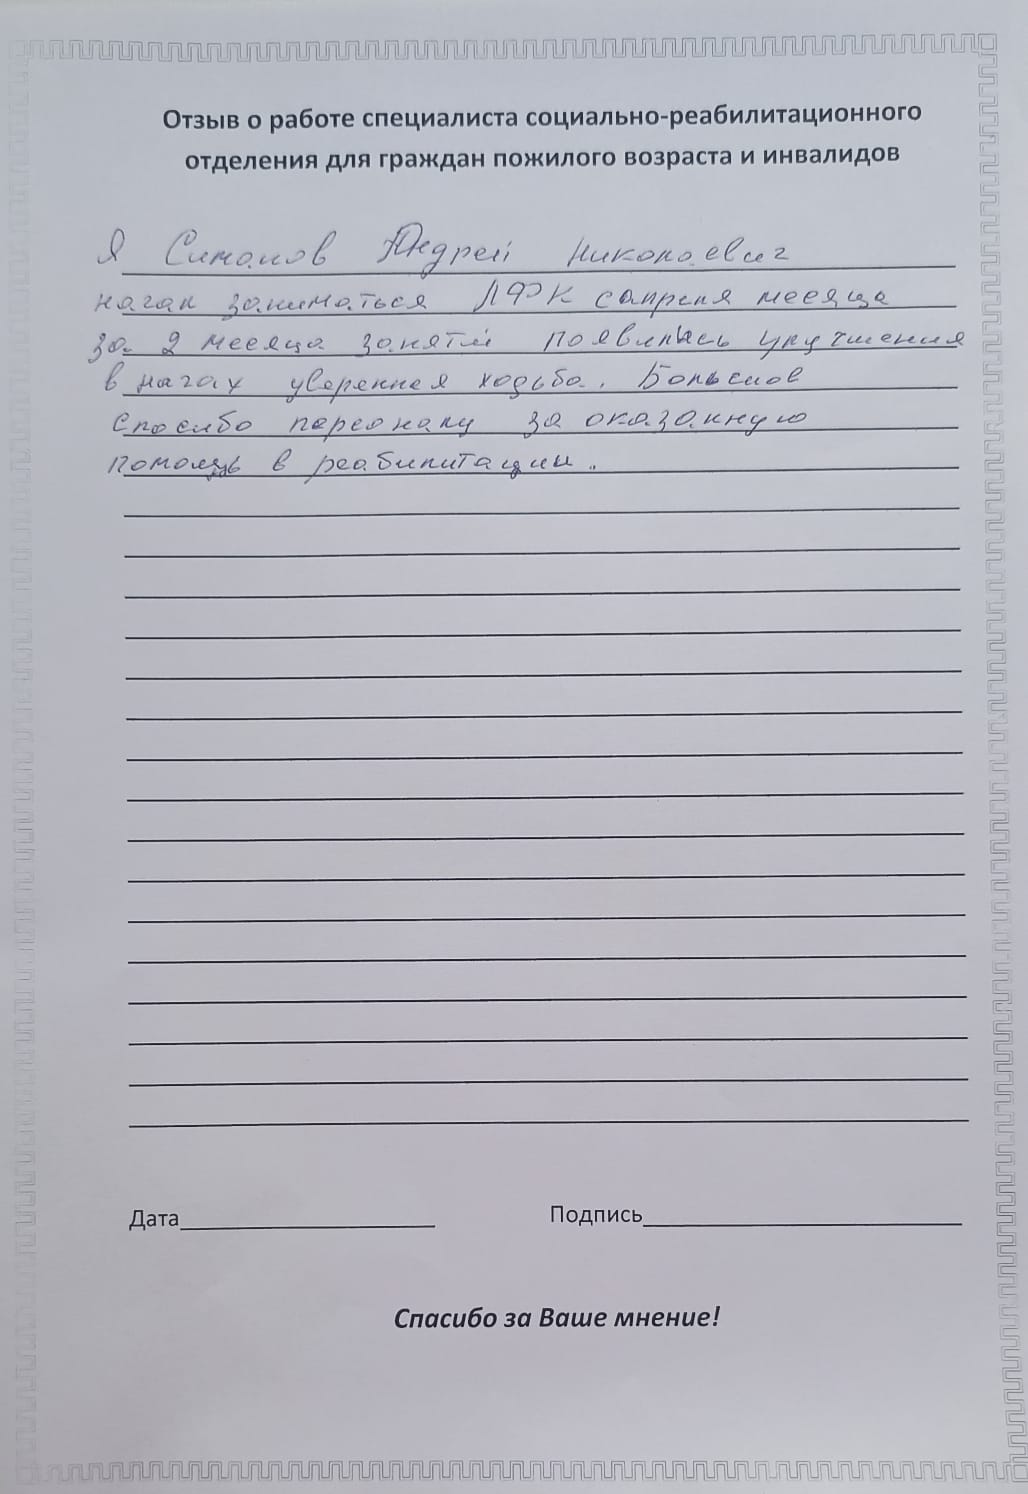 Отзыв о работе специалиста социально-реабилитационного
отделения для граждан пожилого возраста и инвалидов
Я Симонов Андрей Николаевич
начал заниматься ЛФК сапреля месяца
за 2 месяца занятий появились улутшения
в нагах уверенная ходьба. Большов
Спосибо персоналу за оказанную
помощь в реабилитации.
Дата
Подпись
Спасибо за Ваше мнение!